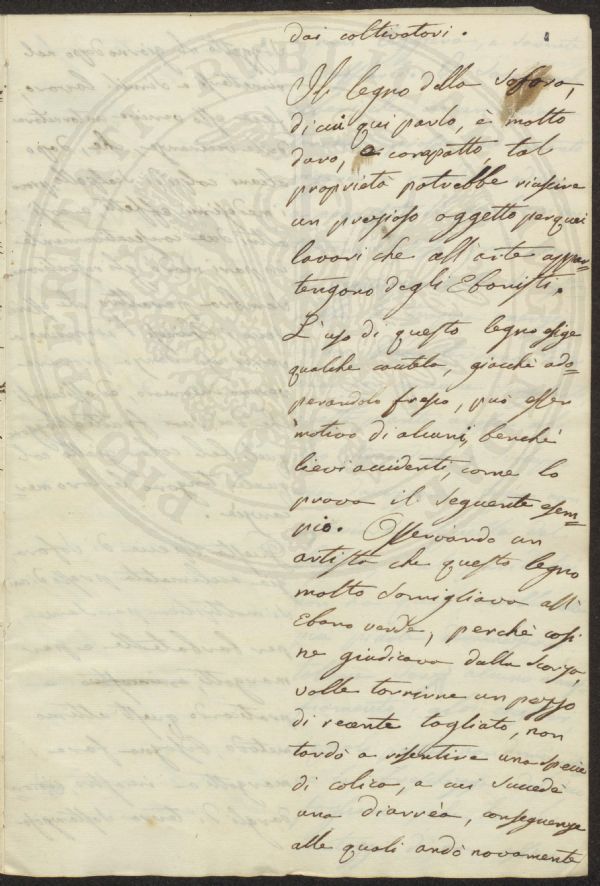 dai coltivatori.
Il legno della Sofora,
di cui qui parlo, è molto
duro, e compatto, tal
proprietà potrebbe riuscire
un prezioso oggetto per quei
lavori che all'arte appar=
tengono degli Ebanisti.
L'uso di questo legno esige
qualche cautela, giacchè ado=
perandolo fresco, può esser
motivo di alcuni, benchè
lievi accidenti, come lo
prova il seguente esem=
pio. Osservando un
artista che questo legno
molto somigliava all'
Ebano verde, perchè così
ne giudicava dalla Scorza,
volle tornirne un pezzo
di recente tagliato, non
tardò a risentire una specie
di colica, a cui succedè
una diarrèa, conseguenze
alle quali andò novamente